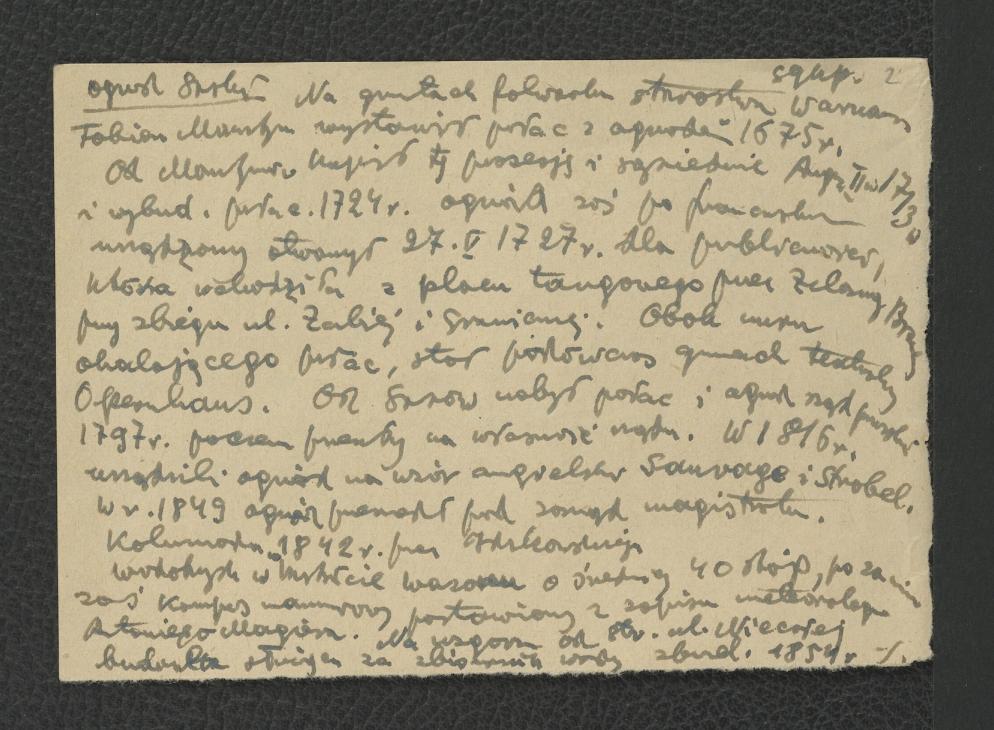 ogród Saski Na gruntach folwarku starostwa Warszaws
Fabian Munchyn wystawił pałac z ogrodem 1675r.
Od kupił tę posesję i sąsiednie Aug. II w 1713
i wybud. pałac. 1724r. ogród zaś po francusku
urządzony otworzył 27.V 1727r. dla publiczności,
która wchodziła z placu targowego przez Żelazną Bramę
przy zbiegu ul. Żabiej i Granicznej. Obok muru
okalającego pałac, stał podówczas gmach teatralny
Opernhaus. Od Sasów nabył pałac i ogród rząd pruski
1797r. poczem przeszedły na własność rządu. W 1816r.
urządzili ogród na wzór angielski Sauvage i Strobel.
W r. 1849 ogród przeszedł pod zarząd magistratu.
1842r. przez
wodotrysk w kształcie wazonu o średnicy 40 stóp, po za nim
zaś kompas marmurowy postawiony z zapisu meteorologa
Antoniego Magiera. Na wzgórzu od str. ul. Niecałej
budowla służąca za zbiornik wody zbud. 1854r -/.